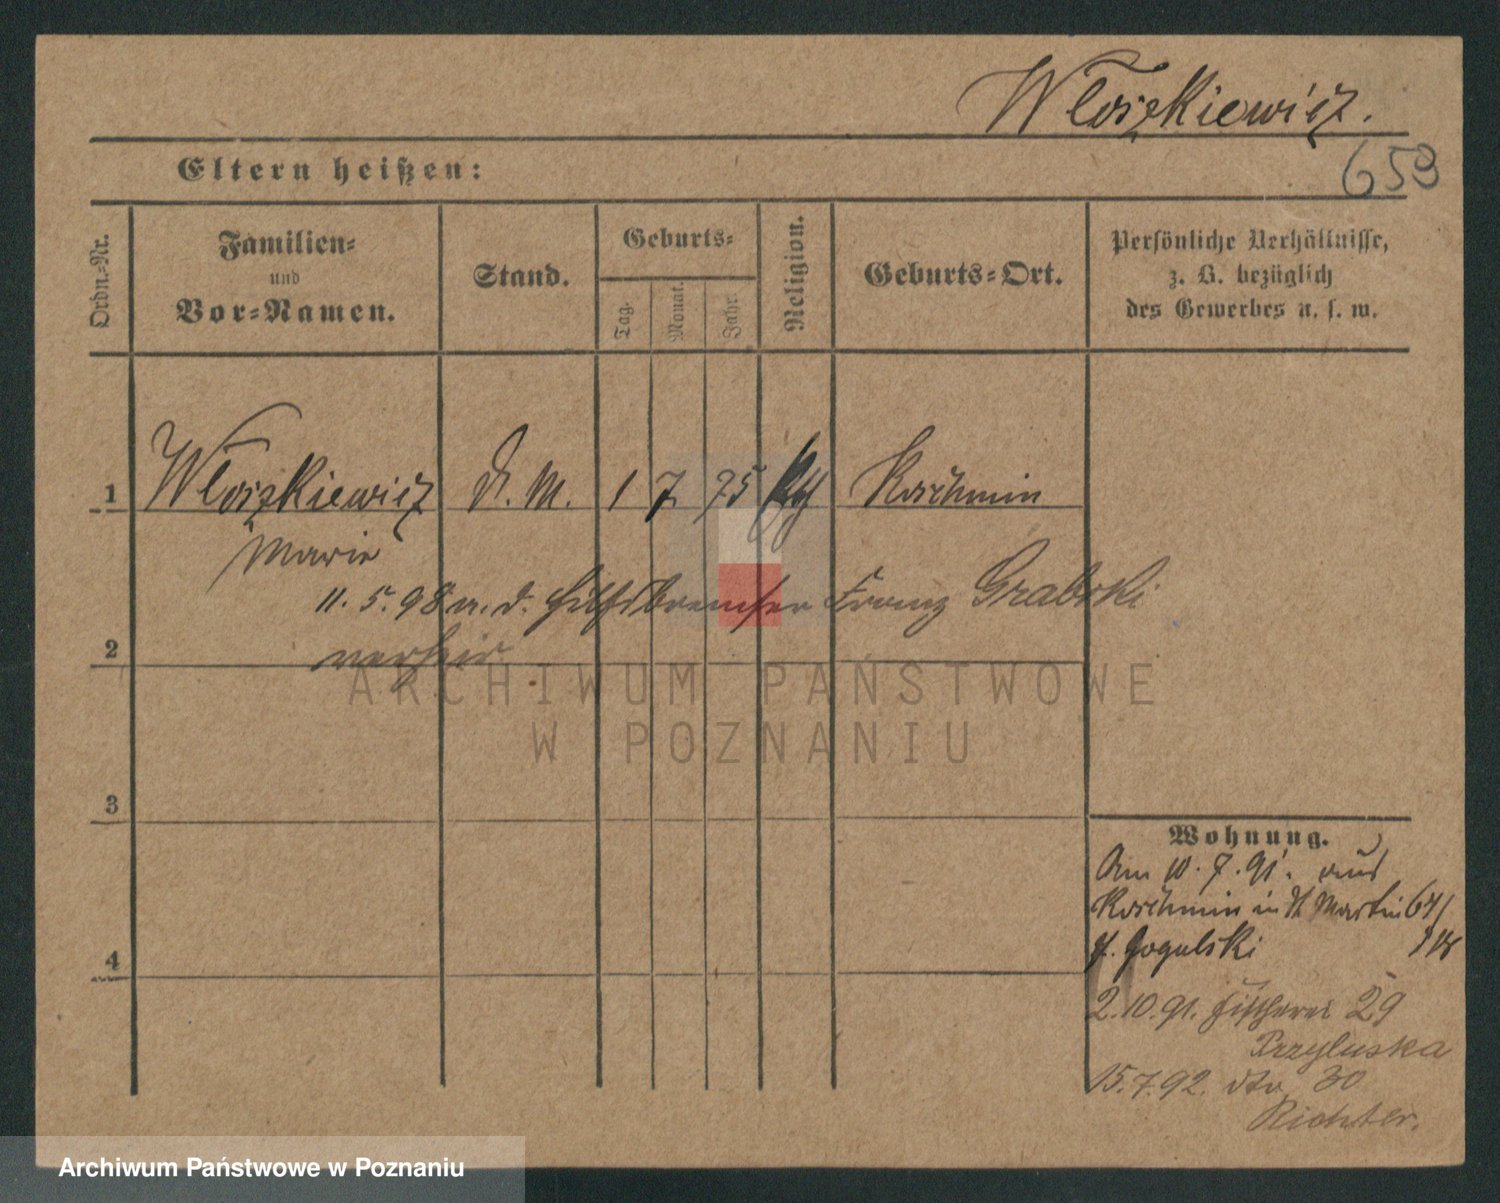 Wloszkiewicz.
653
Eltern heißen:
Ordn.-Nr.
Familien-
und
Vor-Namen.
Stand.
Geburts-
Tag.
Monat.
Jahr.
Religion.
Geburts-Ort.
Persönliche Verhältnisse,
z. B. bezüglich
des Gewerbes u. s. w.
1 Wloszkiewicz D. M. 1 7 75 Kth Koschmin
Marie
11. 5. 98 m. d. Hilfsbremser Franz Grabski
2 verheir.
3
4
Wohnung.
Am 10. 7. 91. aus
Koschmin in St Martin 67/
b. Gogulski
2.10.91. Fischerei 29
Przyluska
15.7.92. dto 30
Richter.
ARCHIWUM PAŃSTWOWE
W POZNANIU
Archiwum Państwowe w Poznaniu